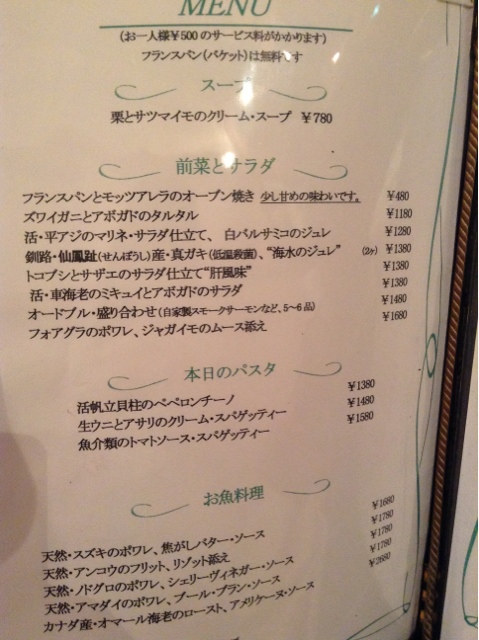 MENU
(お一人様¥500のサービス料がかかります)
フランスパン(バケット)は無料です
スープ
栗とサツマイモのクリーム・スープ ¥780
前菜とサラダ
フランスパンとモッツアレラのオーブン焼き 少し甘めの味わいです。 ¥480
ズワイガニとアボガドのタルタル ¥1180
活・平アジのマリネ・サラダ仕立て、白バルサミコのジュレ ¥1280
釧路・仙鳳趾(せんぽうし)産・真ガキ(低温殺菌)、“海水のジュレ” (2ヶ) ¥1380
トコブシとサザエのサラダ仕立て“肝風味” ¥1380
活・車海老のミキュイとアボガドのサラダ ¥1380
オードブル・盛り合わせ(自家製スモークサーモンなど、5~6品) ¥1480
フォアグラのポワレ、ジャガイモのムース添え ¥1680
本日のパスタ
活帆立貝柱のペペロンチーノ ¥1380
生ウニとアサリのクリーム・スパゲッティー ¥1480
魚介類のトマトソース・スパゲッティー ¥1580
お魚料理
天然・スズキのポワレ、焦がしバター・ソース ¥1680
天然・アンコウのフリット、リゾット添え ¥1780
天然・ノドグロのポワレ、シェリーヴィネガー・ソース ¥1780
天然・アマダイのポワレ、ブール・ブラン・ソース ¥1780
カナダ産・オマール海老のロースト、アメリケーヌ・ソース